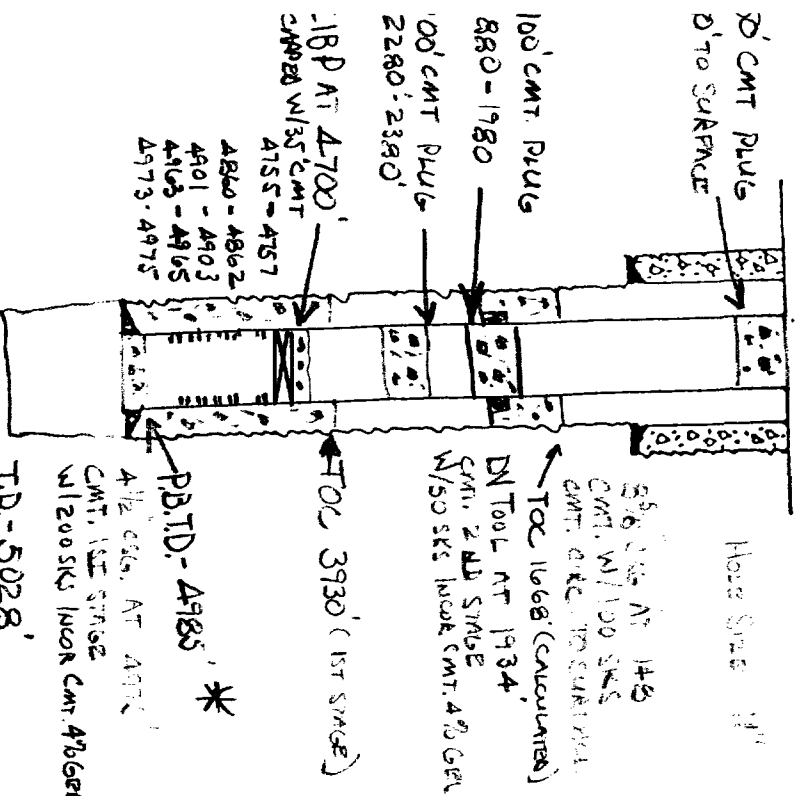 0' CMT PLUG
0' TO SURFACE
100' CMT. PLUG
880-1980
00' CMT PLUG
2280'-2380'
IBP AT 4700'
CAPPED W/35' CMT
4755-4757
4860-4862
4901-4903
4963-4965
4973-4975
HOLE SIZE
8 5/8 CSG AT
CMT. W/100 SKS
CMT. CIRC. TO SURFACE
TOC 1668' (CALCULATED)
DV TOOL AT 1934'
CMT. 2 ND STAGE
W/50 SKS INCOR CMT. 4% GEL
TOC 3930' (1ST STAGE)
P.B.T.D.- 4985' *
4 1/2 CSG. AT
CMT. 1ST STAGE
W/200 SKS INCOR CMT. 4% GEL
T.D.-5028'